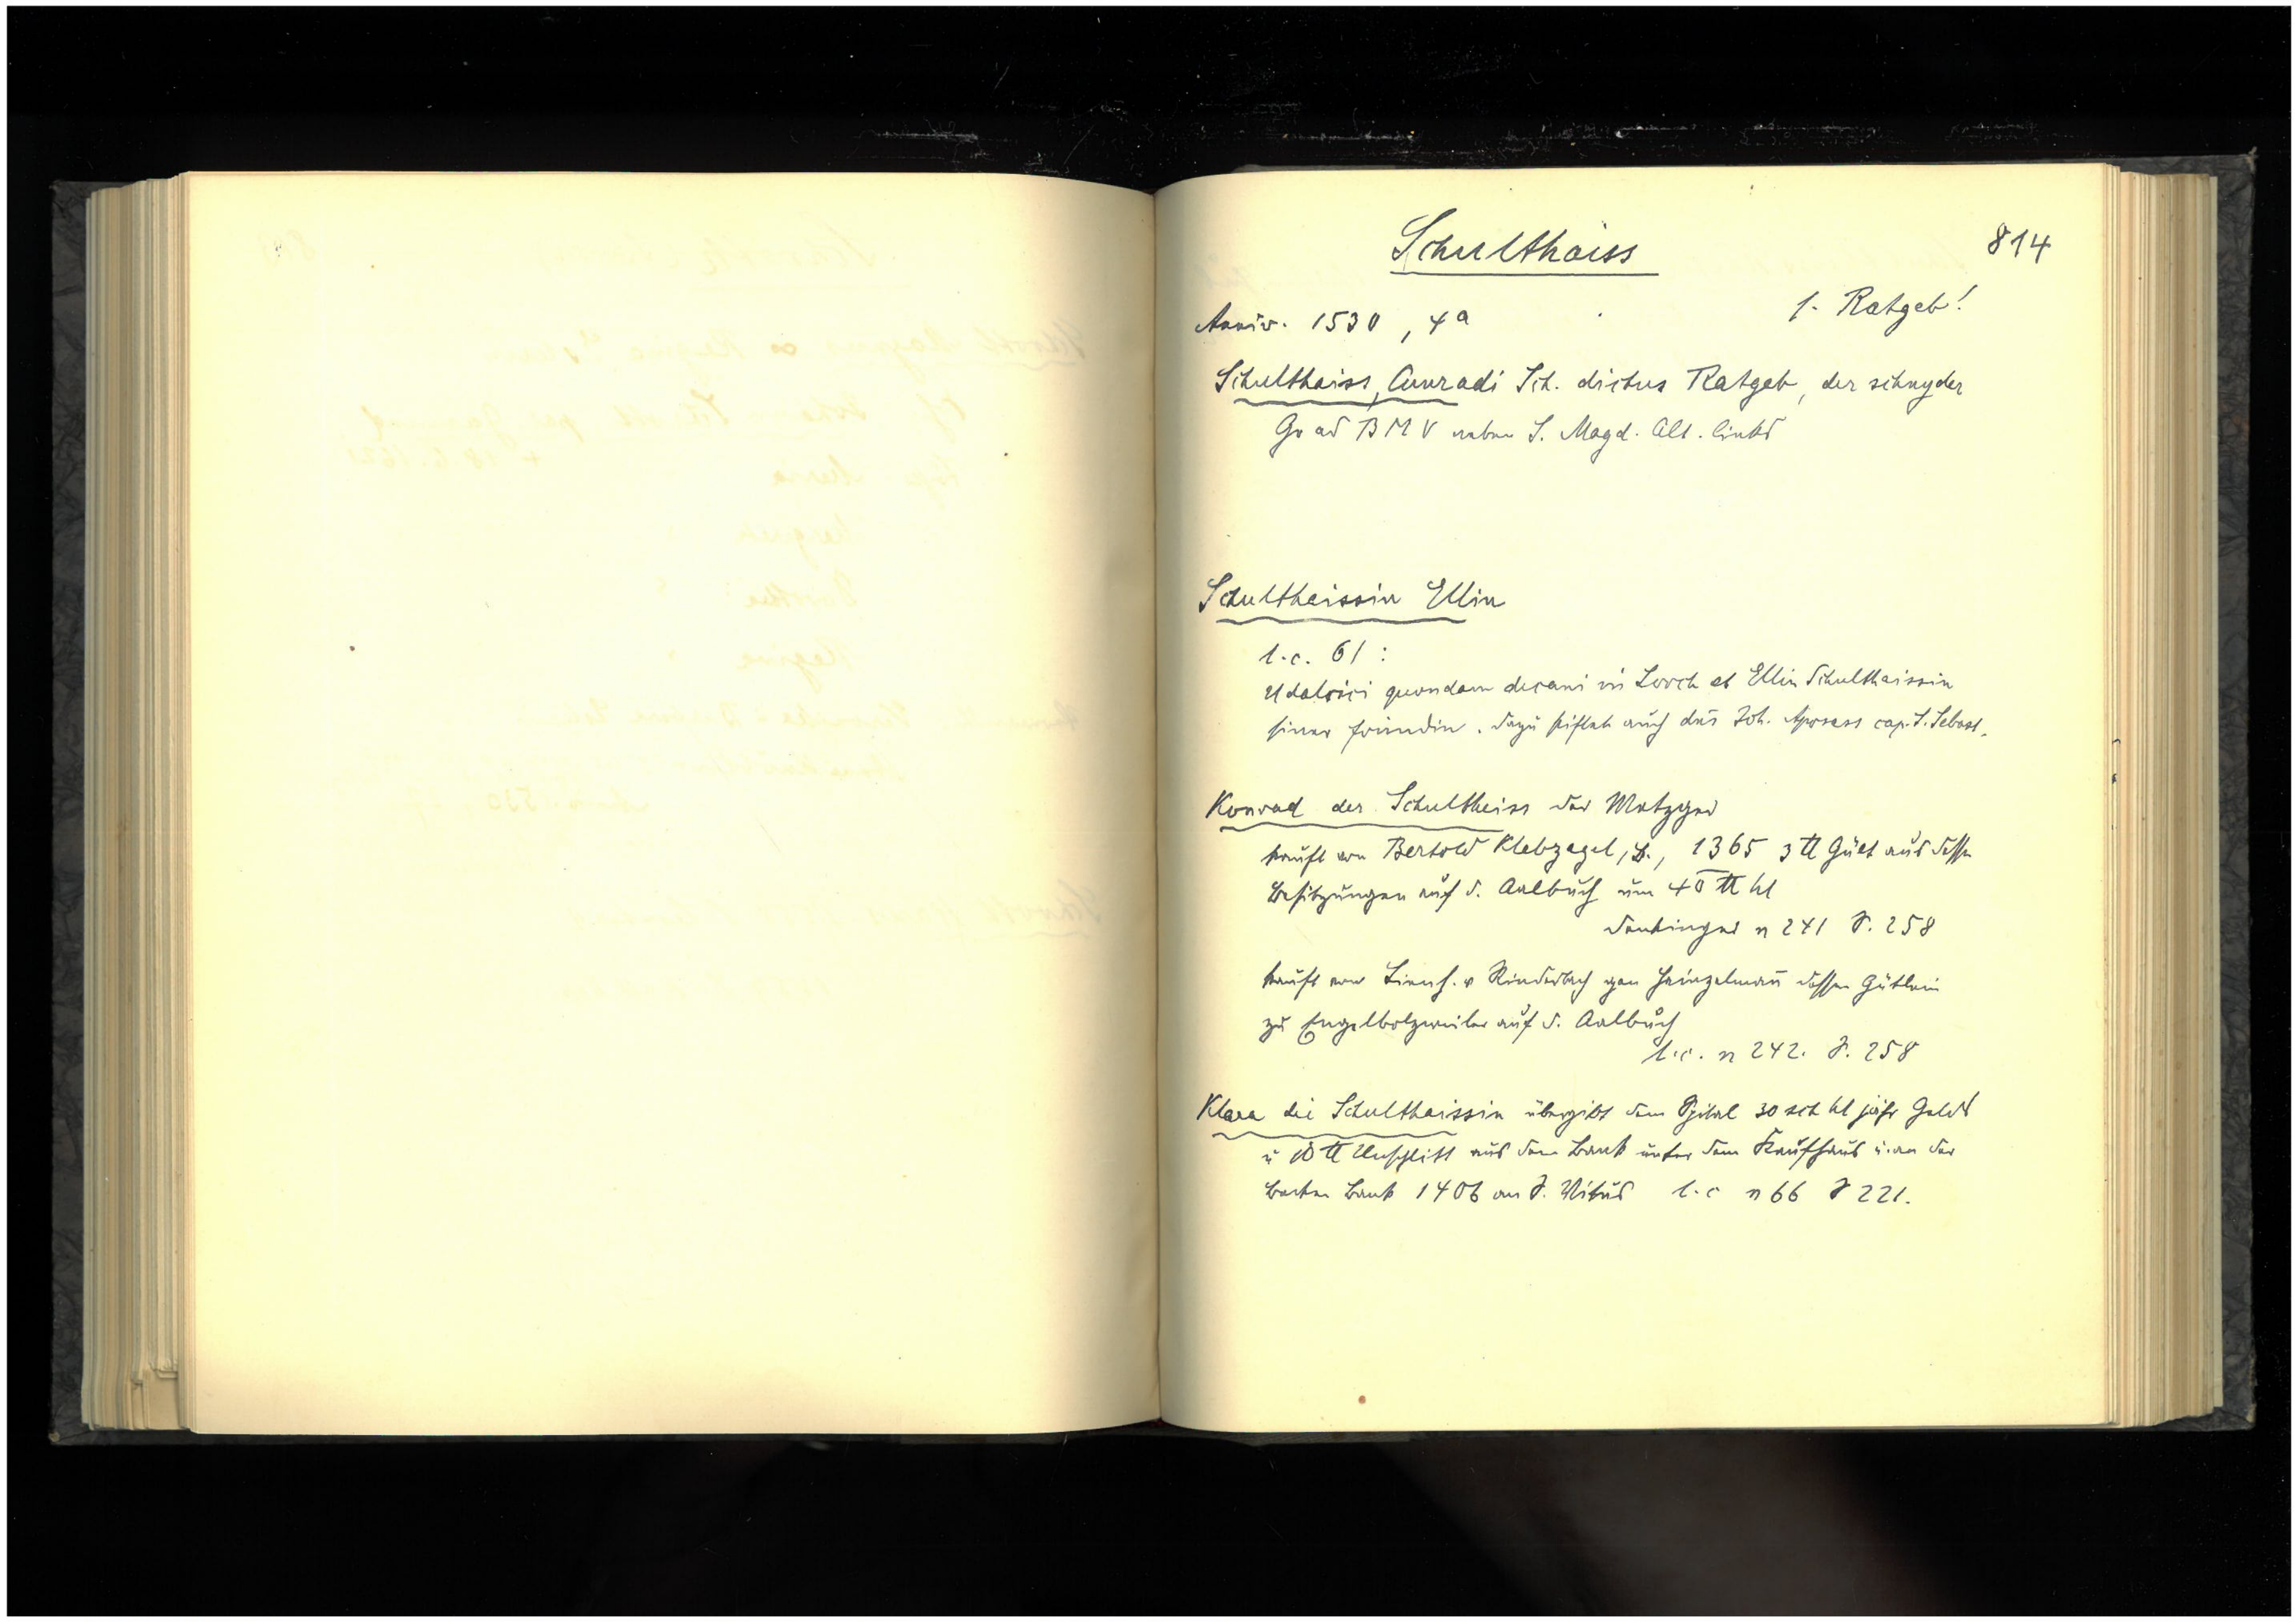 Schulthaiss
814
Anniv. 1530, 4a
s. Ratgeb!
Schulthaiss, Cunradi Sch. dictus Ratgeb, der schnyder
Gr ad BMV neben S. Magd. Alt. links
Schulthaissin Ellin
l.c. 61:
Udalrici quondam decani in Lorch et Ellin Schulthaissin
siner fründin. Dazu stiftet auch der Joh. cap. S. Sebast.
Konrad der Schultheiss der Metzger
kauft von Bertold Klebzagel, B., 1365 3 ℔ Gült aus dessen
Besitzungen auf d. Aalbuch um 40 ℔ hl
Denkinger n 241 S. 258
kauft von Lienh. v Rinderbach gen Heinzelmañ dessen Gütlein
zu Engelbolzweiler auf d. Aalbuch
l.c. n 242. S. 258
Klara die Schulthaissin übergibt dem Spital 30 sch hl jährl Gelds
u 10 ℔ Unschlitt aus dem Bank unter dem Kaufhaus u. an der
Bank 1406 an S. Vitus l.c n 66 S 221.